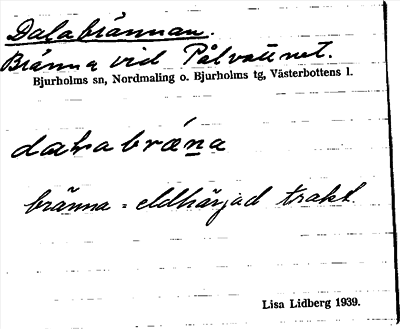 Dalabrännan.
Bränna vid Pålvattnet.
Bjurholms sn, Nordmaling o. Bjurholms tg, Västerbottens l.
daḷrabræ̀n̲a
bränna = eldhärjad trakt.
Lisa Lidberg 1939.